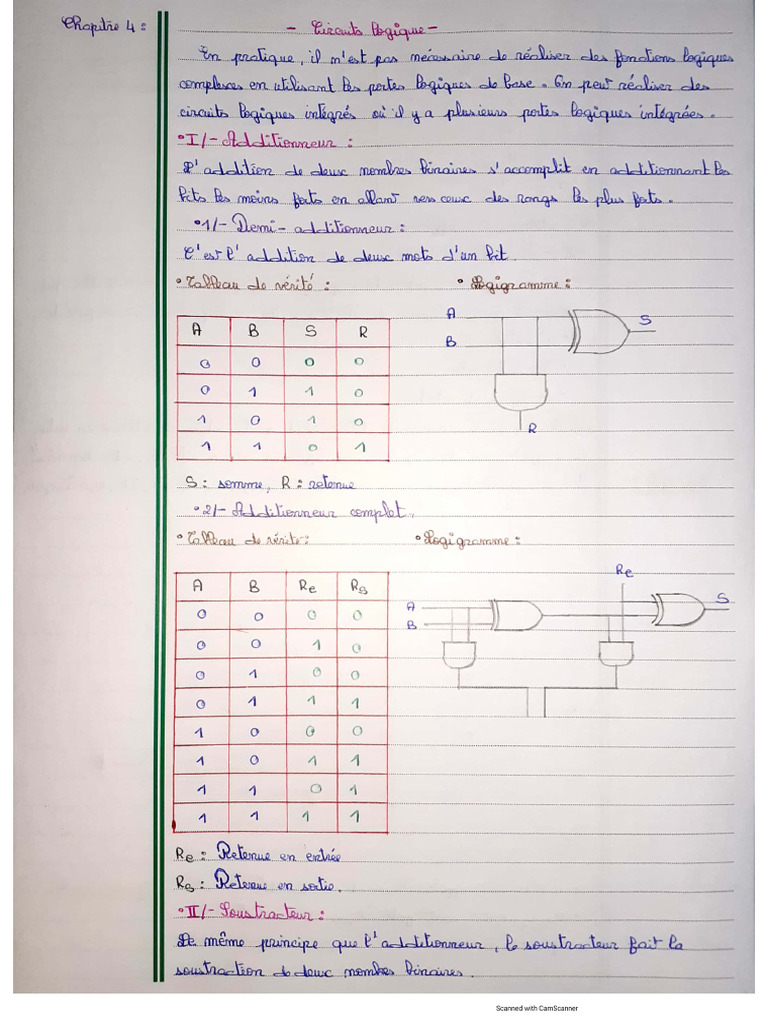 Chapitre 4 :
- Circuits logique -
En pratique, il n'est pas nécessaire de réaliser des fonctions logiques
complexes en utilisant les portes logiques de base. On peut réaliser des
circuits logiques intégrés où il y a plusieurs portes logiques intégrées.
• I/- Additionneur :
L'addition de deux nombres binaires s'accomplit en additionnant les
bits les moins forts en allant vers ceux des rangs les plus forts.
• 1/- Demi-additionneur :
C'est l'addition de deux mots d'un bit.
• Tableau de vérité : • Logigramme :
A B S R
0 0 0 0
0 1 1 0
1 0 1 0
1 1 0 1
A
B
S
R
S : somme, R : retenue
• 2/- Additionneur complet.
• Tableau de vérité : • Logigramme :
A B Re Rs
0 0 0 0
0 0 1 0
0 1 0 0
0 1 1 1
1 0 0 0
1 0 1 1
1 1 0 1
1 1 1 1
Re
A
B
S
Re : Retenue en entrée
Rs : Retenue en sortie.
• II/- Soustracteur :
Le même principe que l'additionneur, le soustracteur fait la
soustraction de deux nombres binaires.
Scanned with CamScanner